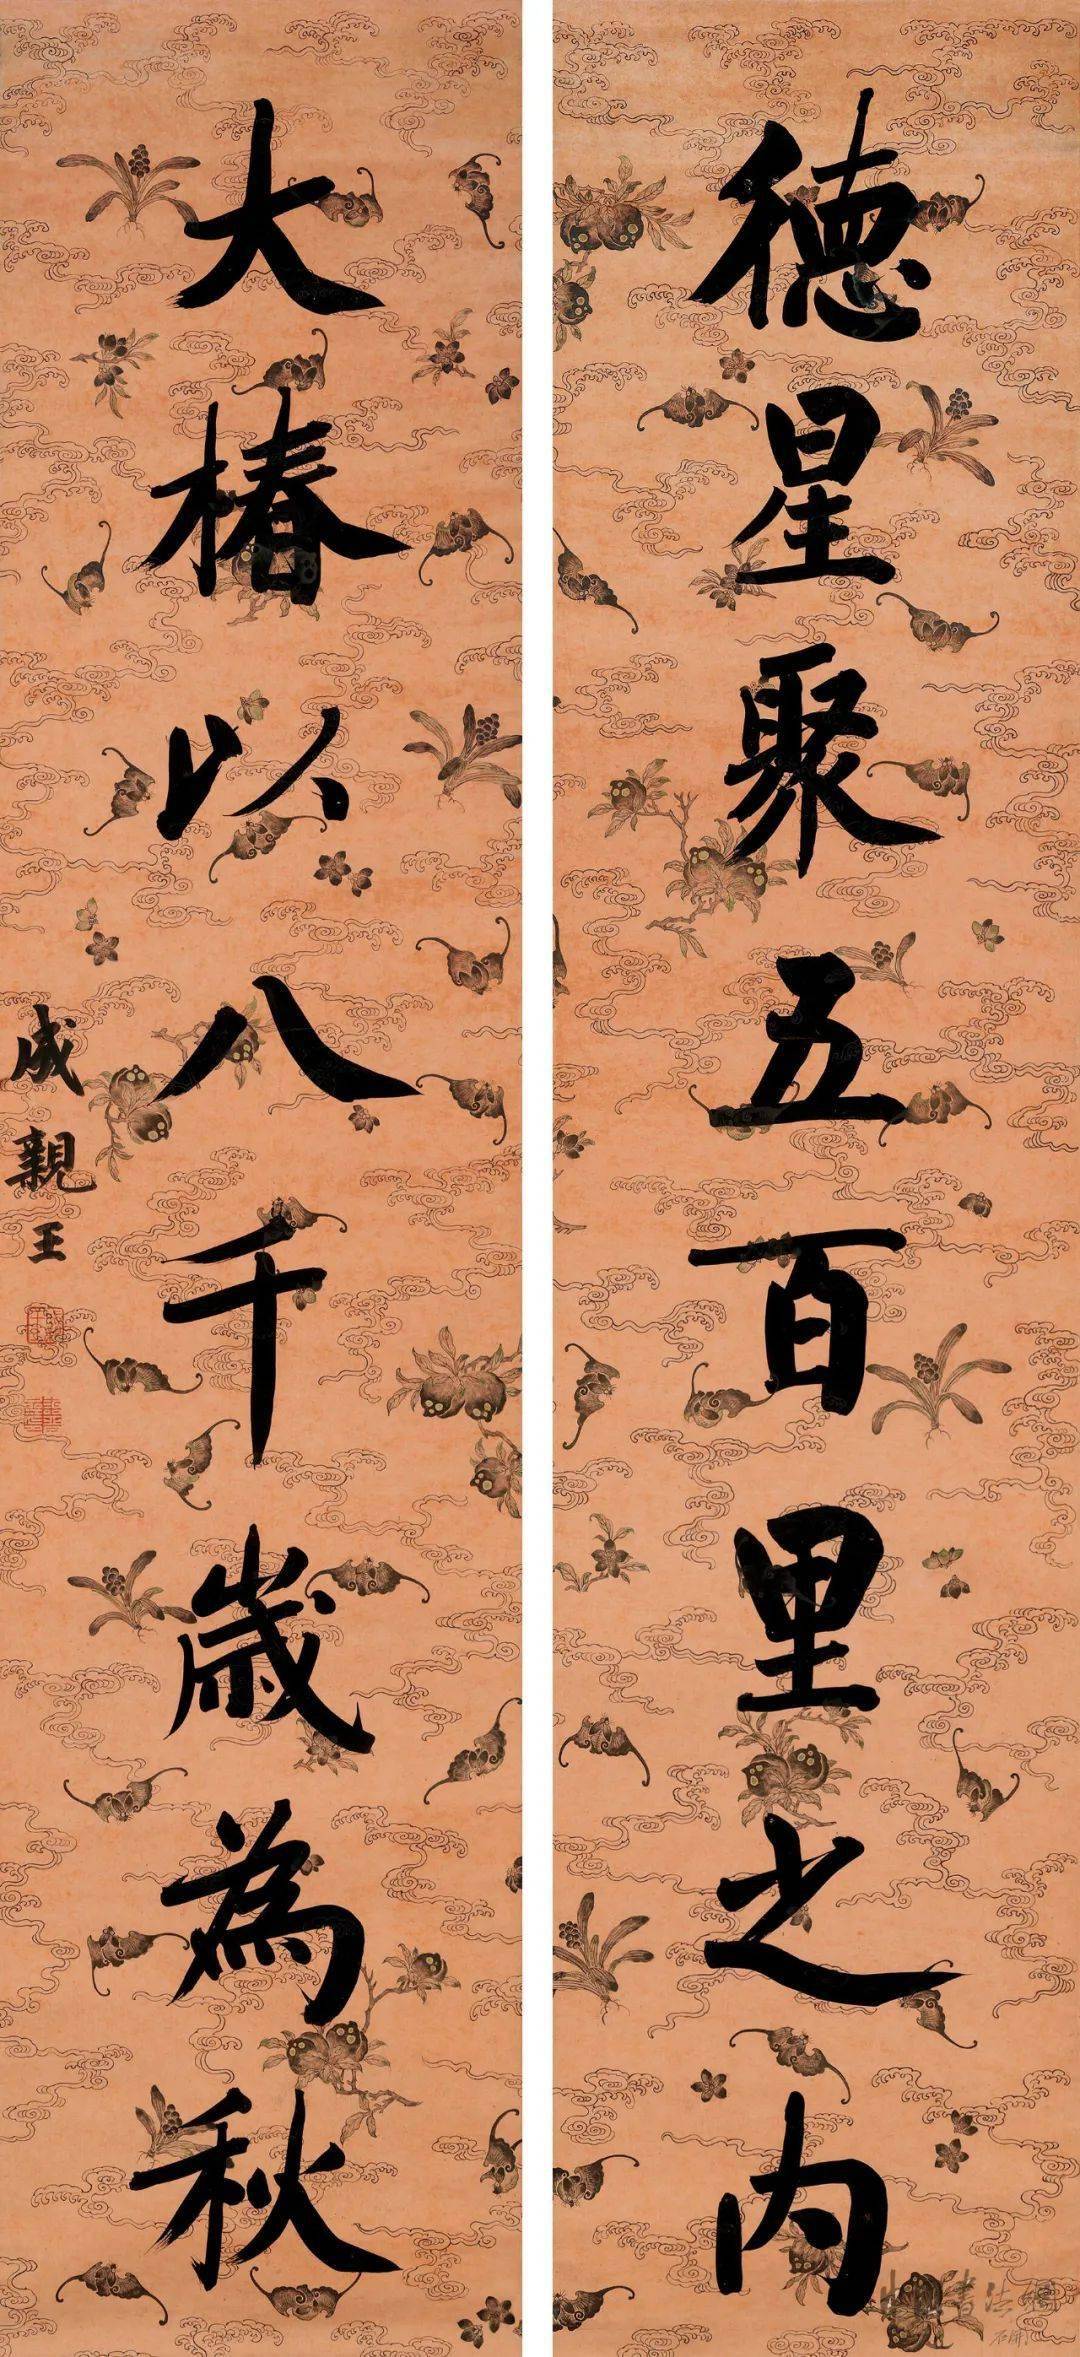 德星聚五百里之内
大椿以八千歲為秋
成親王